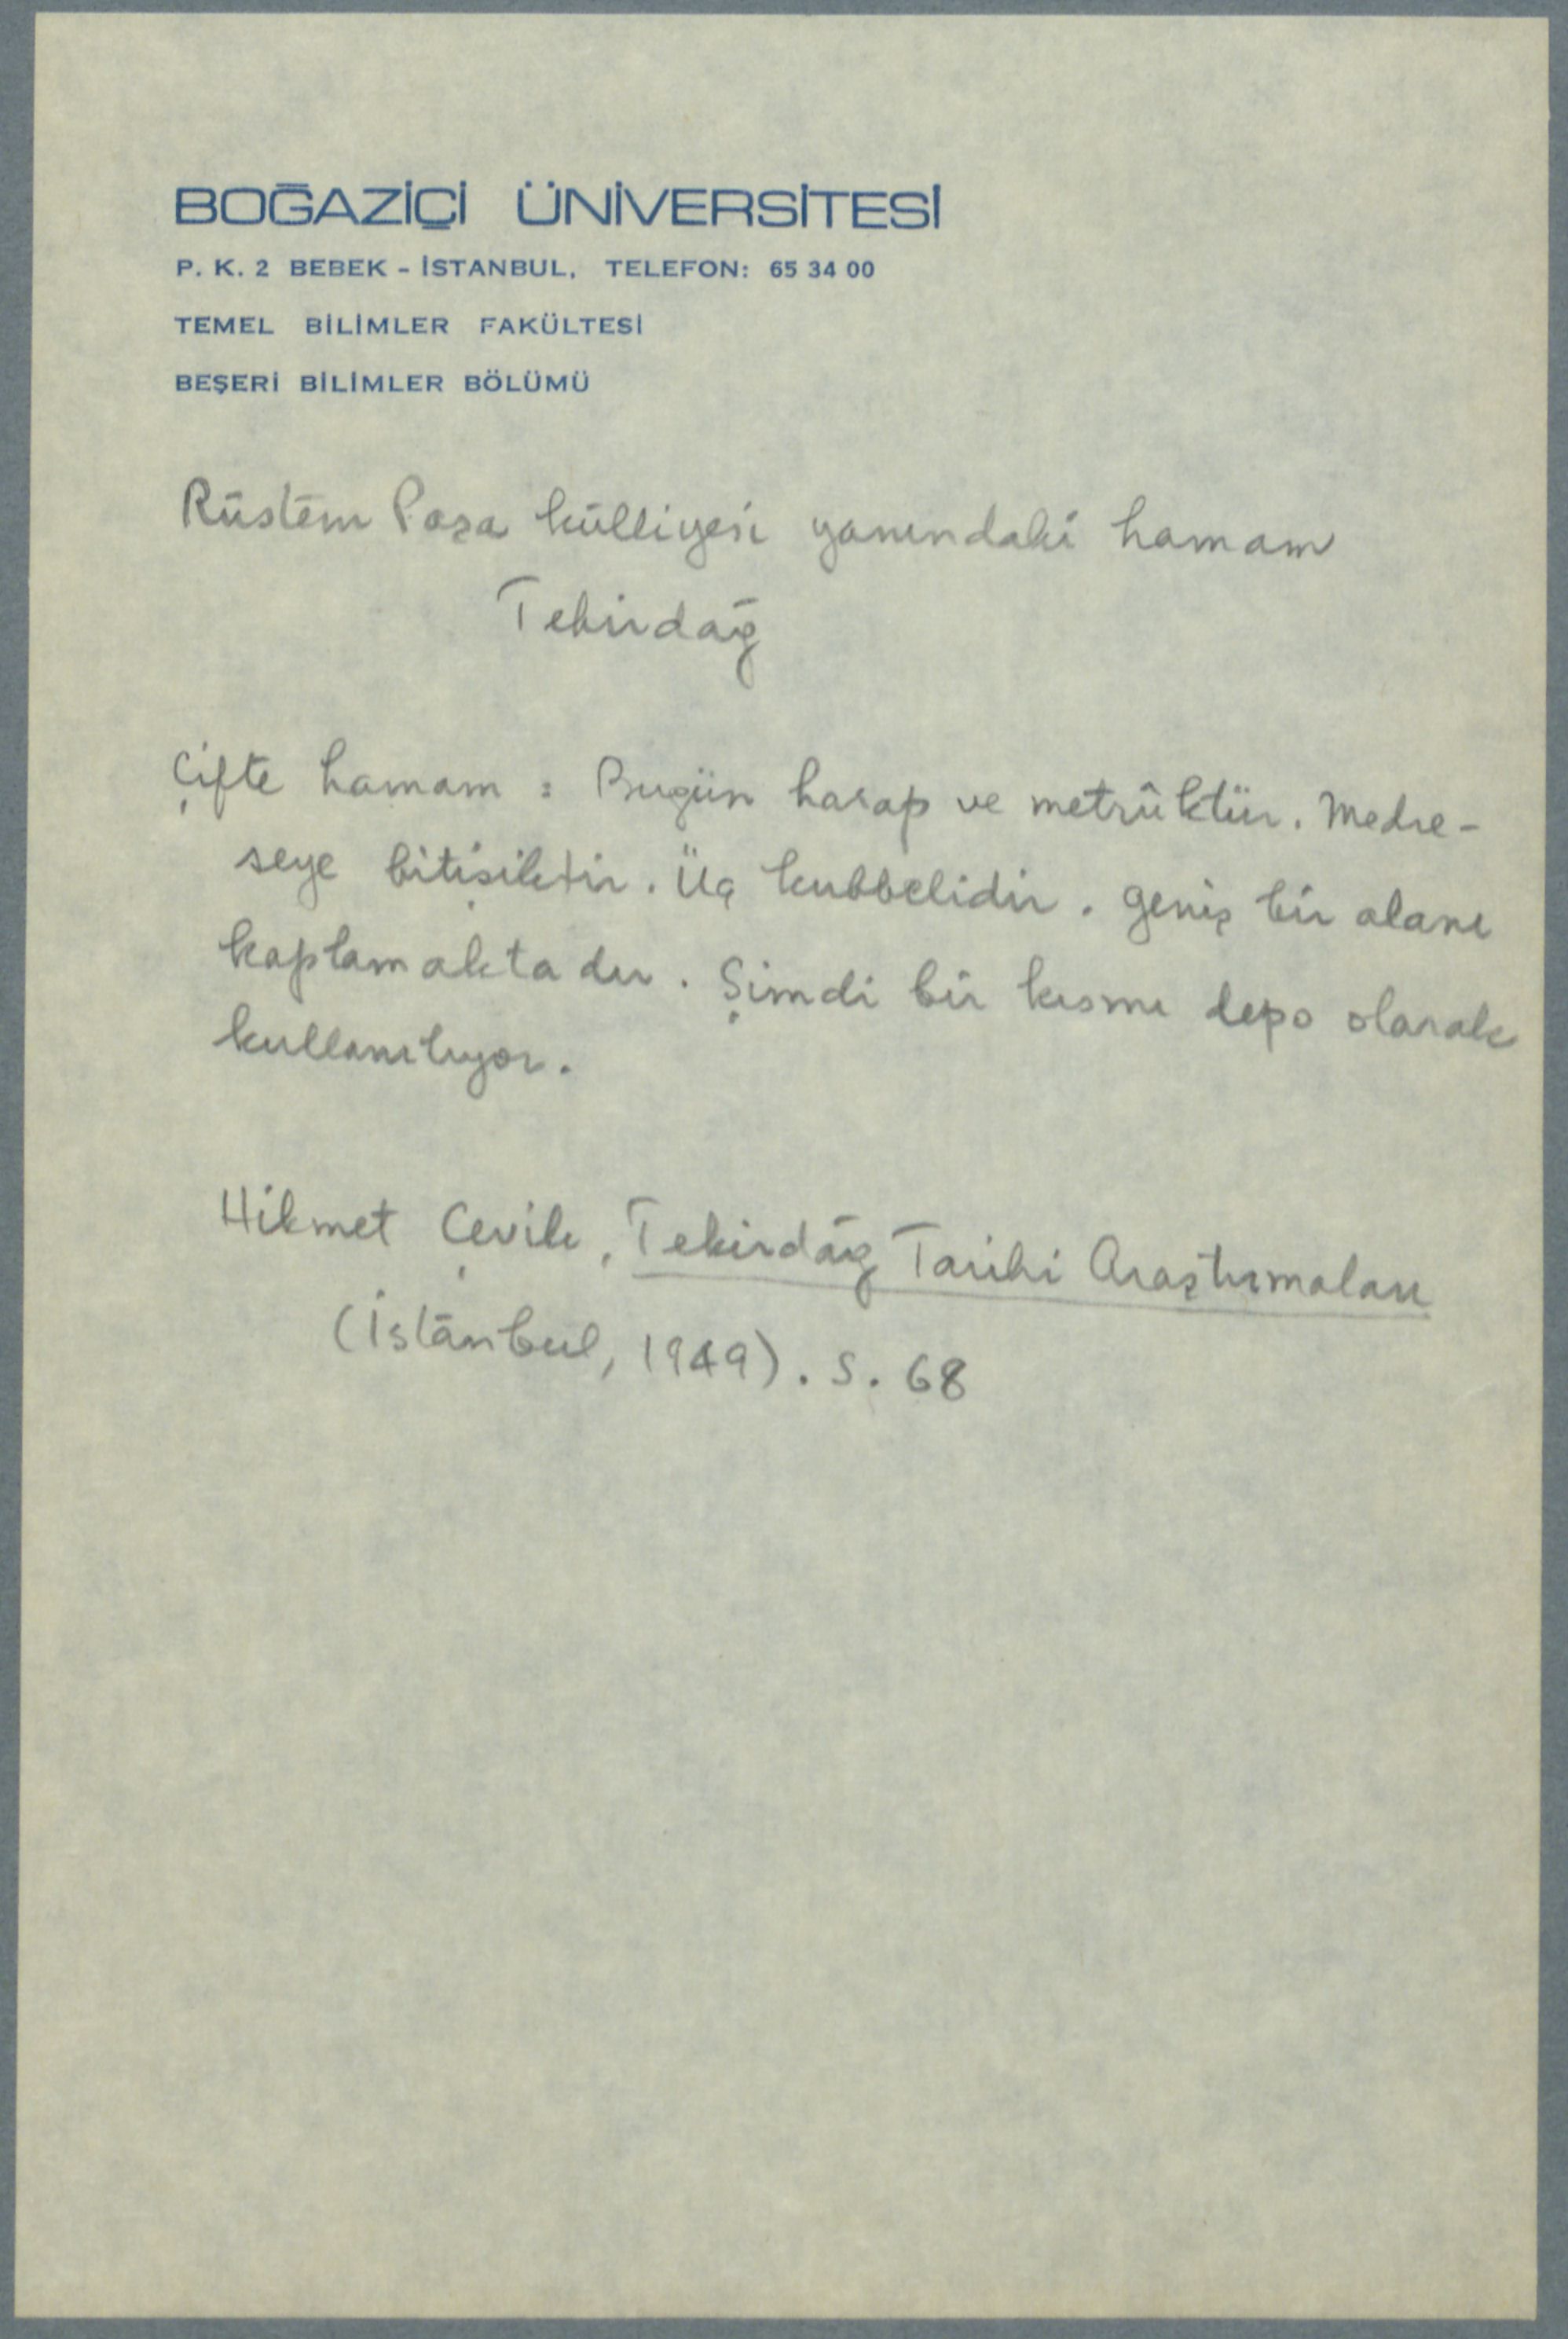 BOĞAZİÇİ ÜNİVERSİTESİ
P. K. 2 BEBEK - İSTANBUL, TELEFON: 65 34 00
TEMEL BİLİMLER FAKÜLTESİ
BEŞERİ BİLİMLER BÖLÜMÜ
Rüstem Paşa külliyesi yanındaki hamam
Tekirdağ
Çifte hamam : Bugün harap ve metrûktür. Medre-
seye bitişiktir. Üç kubbelidir. Geniş bir alanı
kaplamaktadır. Şimdi bir kısmı depo olarak
kullanılıyor.
Hikmet Çevik, Tekirdağ Tarihi Araştırmaları
(İstanbul, 1949). S. 68